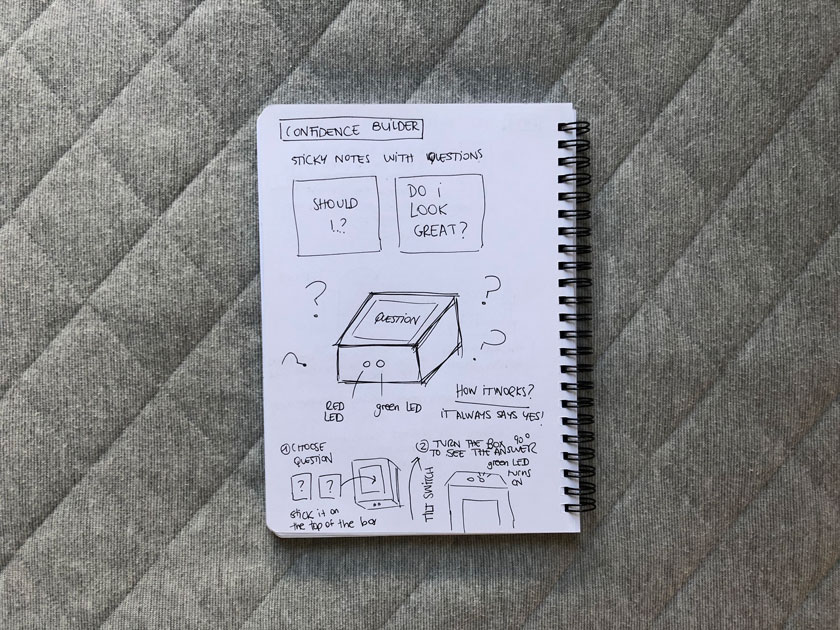 CONFIDENCE BUILDER
STICKY NOTES WITH QUESTIONS
SHOULD
I...?
DO i
LOOK
GREAT?
?
?
?
?
QUESTION
RED
LED
green LED
HOW IT WORKS?
IT ALWAYS SAYS YES!
① CHOOSE
QUESTION
? ?
stick it on
the top of the box
② TURN THE BOX 90°
TO SEE THE ANSWER
green LED
turns
ON
TILT SWITCH